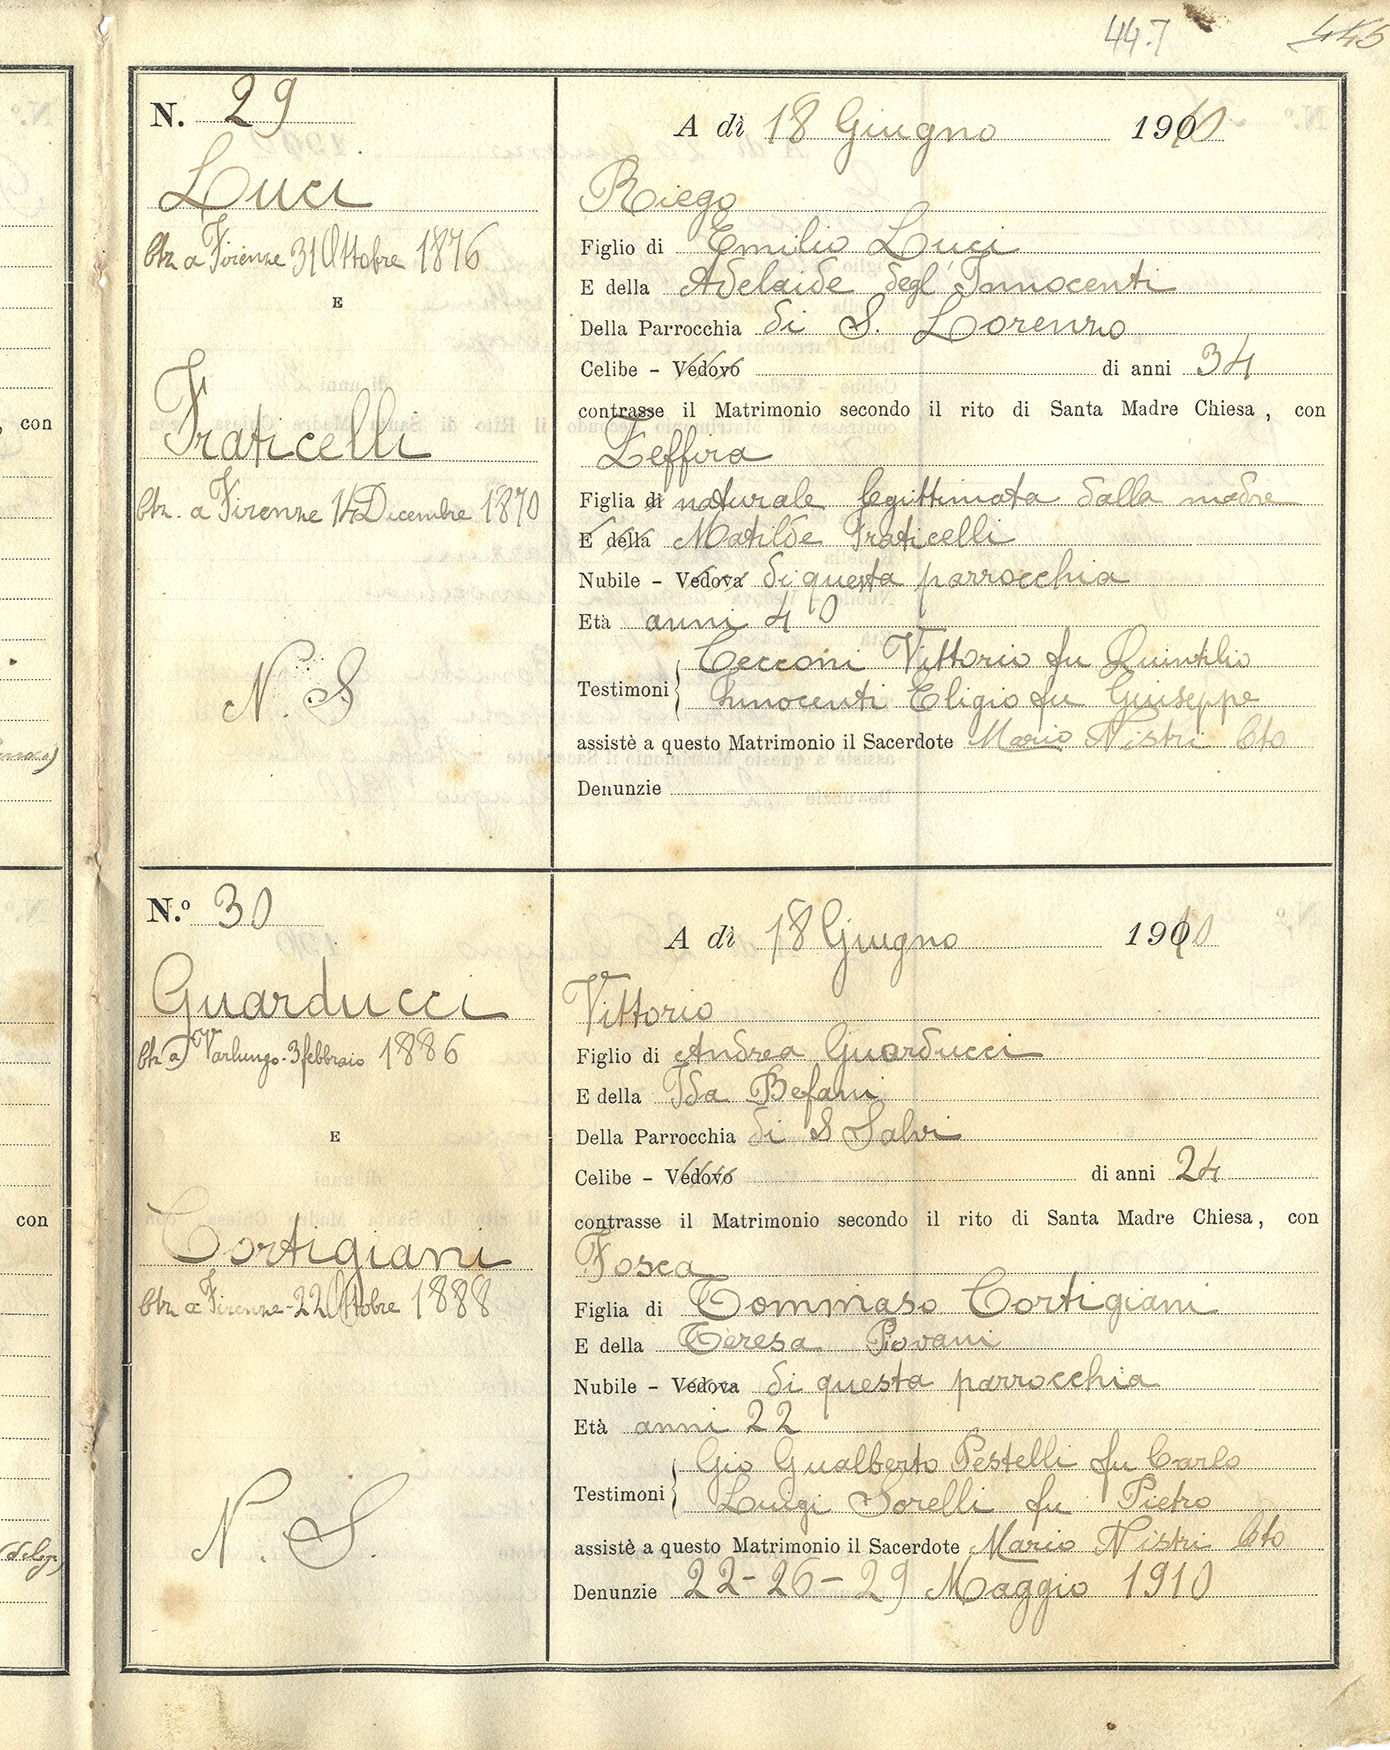 447
445
N. 29
Luci
btz a Firenze 31 Ottobre 1876
E
Fraticelli
btz. a Firenze 14 Dicembre 1870
N. S
A dì 18 Giugno 1910
Riego
Figlio di Emilio Luci
E della Adelaide degl'Innocenti
Della Parrocchia di S. Lorenzo
Celibe - Vedovo di anni 34
contrasse il Matrimonio secondo il rito di Santa Madre Chiesa, con
Zeffira
Figlia di naturale legittimata dalla madre
E della Matilde Fraticelli
Nubile - Vedova di questa parrocchia
Età anni 40
Testimoni Cecconi Vittorio fu Quintilio
Innocenti Eligio fu Giuseppe
assistè a questo Matrimonio il Sacerdote Mario Nistri Cto
Denunzie
N.º 30
Guarducci
btz a Varlungo - 3 febbraio 1886
E
Cortigiani
btz a Firenze - 22 Ottobre 1888
N. S.
A dì 18 Giugno 1910
Vittorio
Figlio di Andrea Guarducci
E della Ida Befani
Della Parrocchia di S Salvi
Celibe - Vedovo di anni 24
contrasse il Matrimonio secondo il rito di Santa Madre Chiesa, con
Fosca
Figlia di Tommaso Cortigiani
E della Teresa Piovani
Nubile - Vedova di questa parrocchia
Età anni 22
Testimoni Gio Gualberto Pestelli fu Carlo
Luigi Sorelli fu Pietro
assistè a questo Matrimonio il Sacerdote Mario Nistri Cto
Denunzie 22 - 26 - 29 Maggio 1910
, con
con